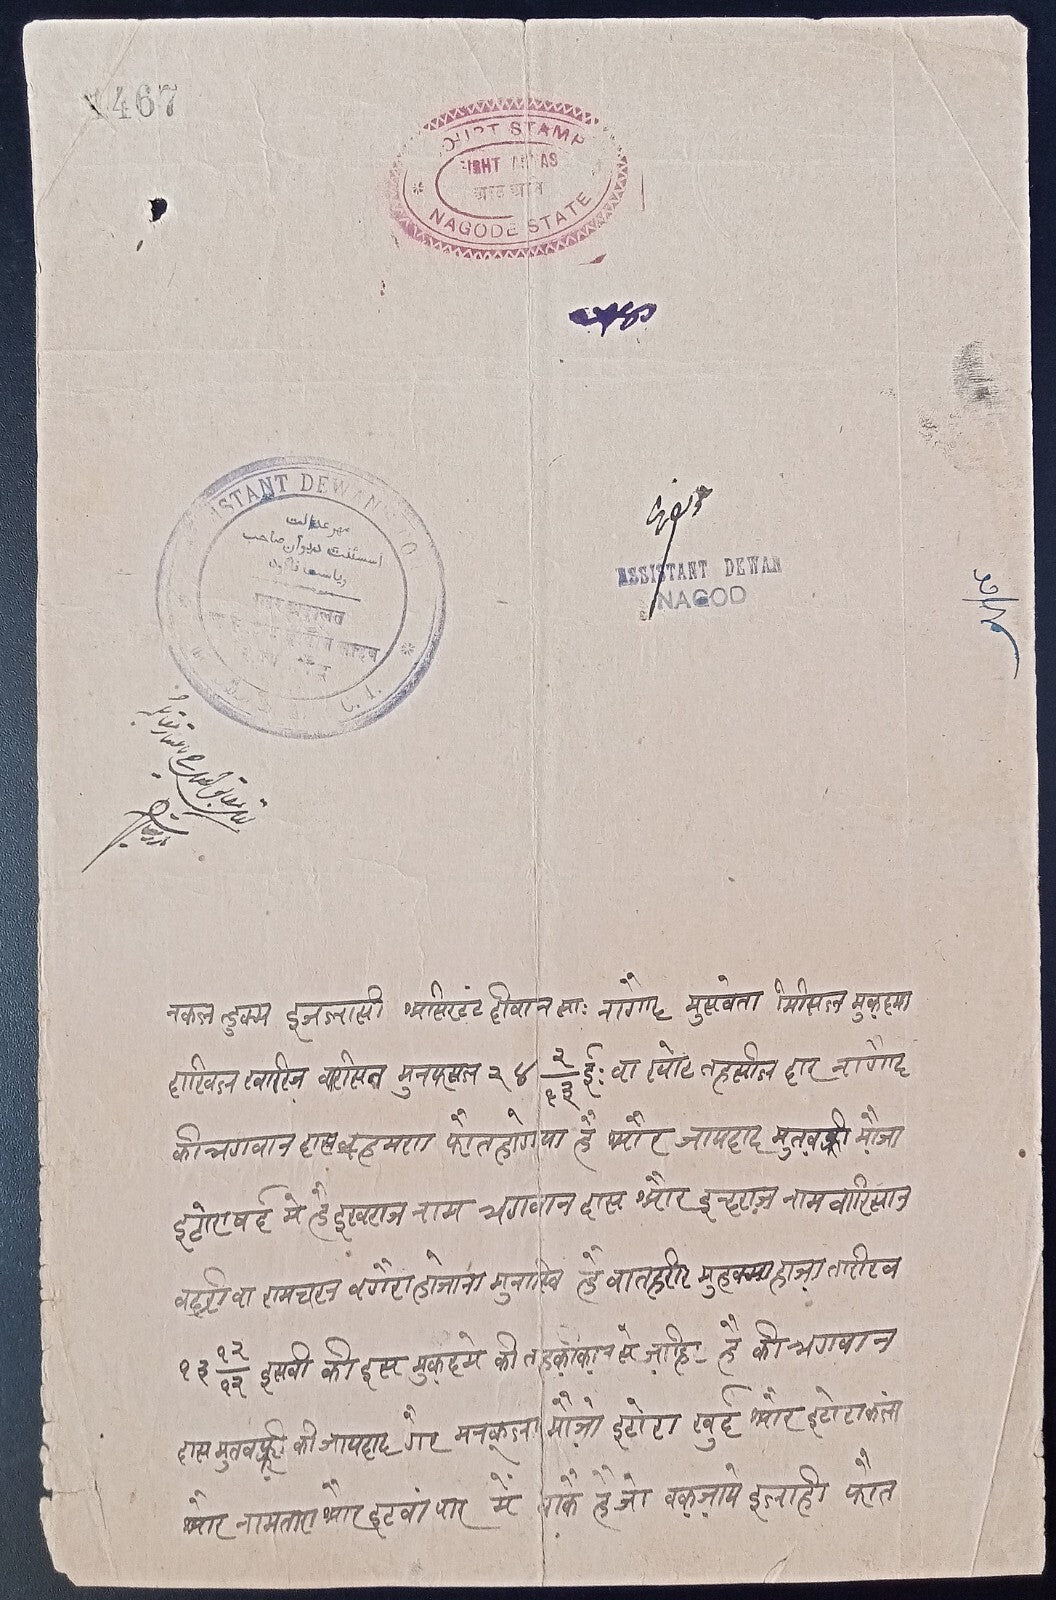 1467
STAMP
EIGHT ANNAS
आठ आने
NAGODE STATE
ASSISTANT DEWAN
مہر عدالت
اسسٹنٹ دیوان صاحب
ریاست ناگود
ASSISTANT DEWAN
NAGOD
नकल हुक्म इजलासी असिस्टंट दीवान सा: नागौद मुसवेता मिसिल मुकद़मा
दाखिल खारिज़ वारिसान मुनफसल २४ २/१३ ई: वा रपोट तहसील दार नागौद
की भगवान दास ब्रहमण फौत होगया है और जायदाद मुतवफ़्फ़ी मौ़जा
इटोरा षर्द मे है इखराज नाम भगवान दास और इन्दराज़ नाम वारिसान
वद्री वा रामचरन वगैरा होजाना मुनासिब है वा तहरीर मुहकमा हाज़ा तारीख
१३ १२/१२ इसवी की इस मुक़दमे की तहक़ीक़ात से ज़ाहिर है की भगवान
दास मुतवफ़्फ़ी की जायदाद गैर मनक़ूला मौज़ो इटोरा खुर्द और इटोरा कलां
और नामतारा और इटवां पार में वाक़ै है जो वक़ज़ाये इलाही फौत